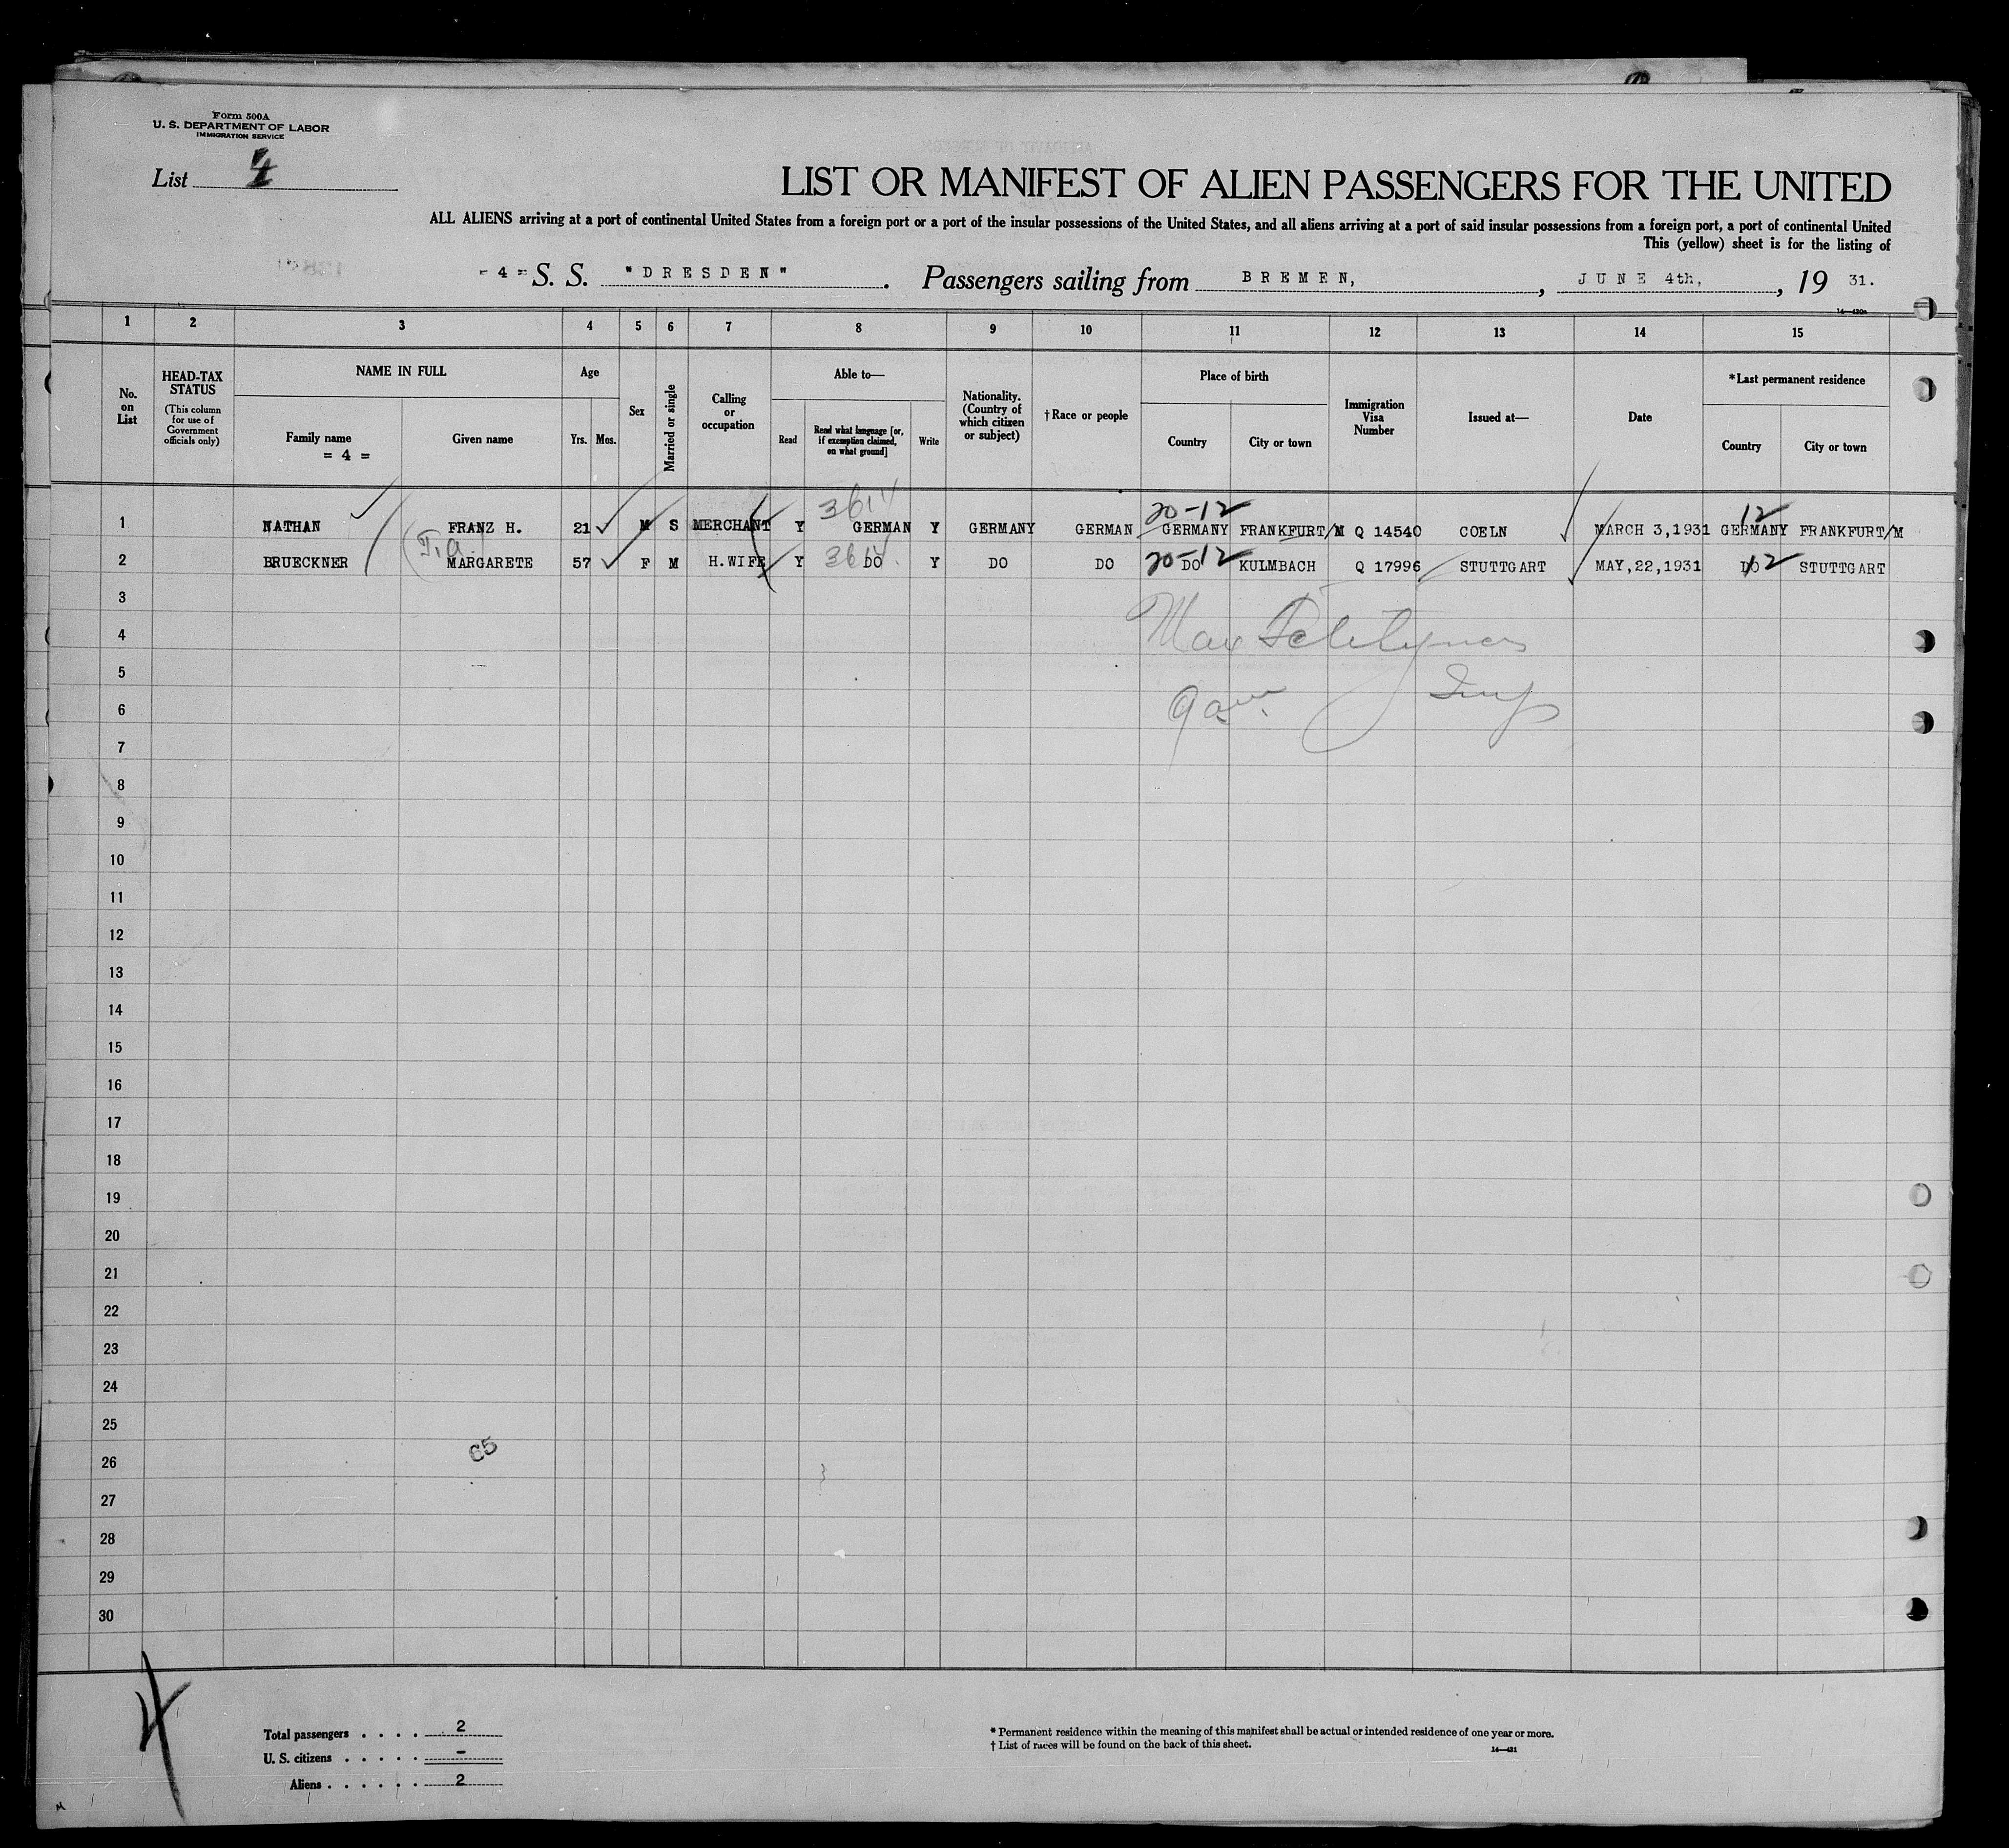 Form 500A
U. S. DEPARTMENT OF LABOR
IMMIGRATION SERVICE
List 4
LIST OR MANIFEST OF ALIEN PASSENGERS FOR THE UNITED
ALL ALIENS arriving at a port of continental United States from a foreign port or a port of the insular possessions of the United States, and all aliens arriving at a port of said insular possessions from a foreign port, a port of continental United
This (yellow) sheet is for the listing of
= 4 = S. S. "DRESDEN". Passengers sailing from BREMEN, , JUNE 4th, , 19 31.
1 2 3 4 5 6 7 8 9 10 11 12 13 14 15
No. on List
HEAD-TAX STATUS
(This column for use of Government officials only)
NAME IN FULL
Family name
= 4 =
Given name
Age
Yrs. Mos.
Sex
Married or single
Calling or occupation
Able to—
Read
Read what language [or, if exemption claimed, on what ground]
Write
Nationality. (Country of which citizen or subject)
† Race or people
Place of birth
Country
City or town
Immigration Visa Number
Issued at—
Date
*Last permanent residence
Country
City or town
3614 20-12 12
1 NATHAN FRANZ H. 21 M S MERCHANT Y GERMAN Y GERMANY GERMAN GERMANY FRANKFURT/M Q 14540 COELN MARCH 3,1931 GERMANY FRANKFURT/M
2 BRUECKNER MARGARETE 57 F M H.WIFE Y DO Y DO DO 20-12 DO KULMBACH Q 17996 STUTTGART MAY,22,1931 DO 12 STUTTGART
3
4 Max
5
6
7
8
9
10
11
12
13
14
15
16
17
18
19
20
21
22
23
24
25
65
26
27
28
29
30
4
Total passengers . . . . 2
U. S. citizens . . . . . –
Aliens . . . . . . 2
* Permanent residence within the meaning of this manifest shall be actual or intended residence of one year or more.
† List of races will be found on the back of this sheet.
14—431